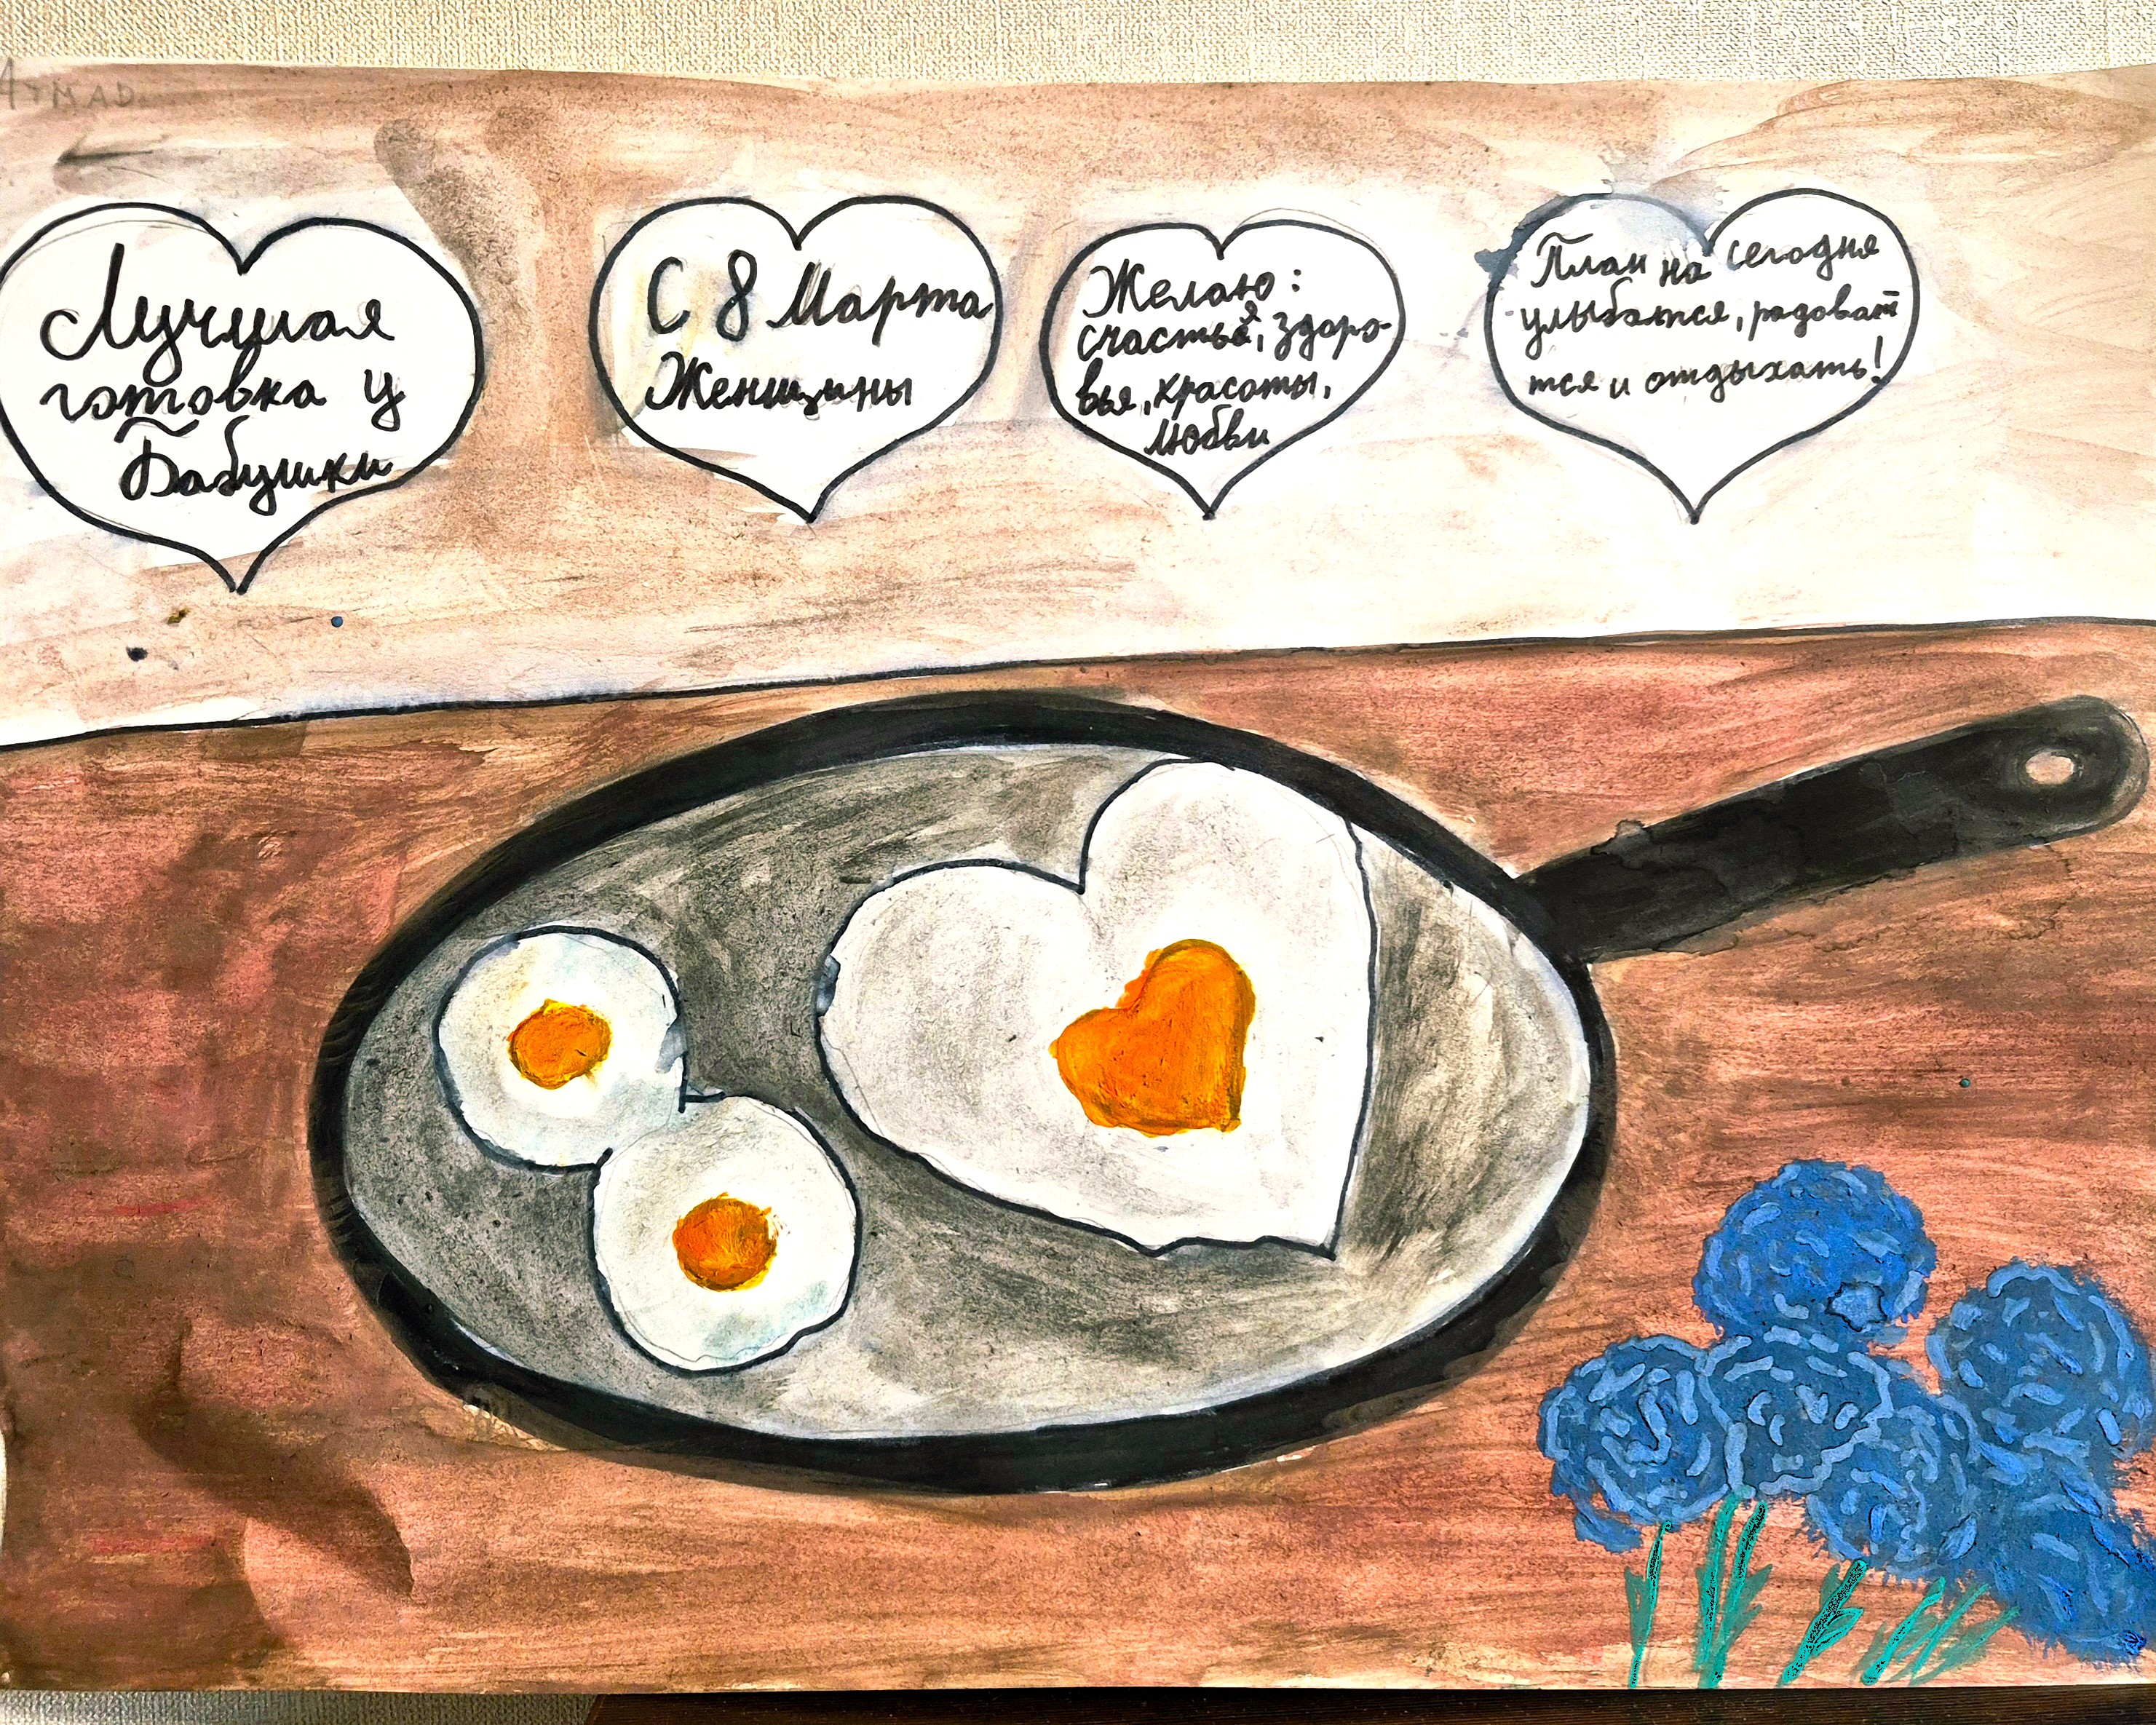 AYMAD
Лучшая
готовка у
Бабушки
С 8 Марта
Женщины
Желаю:
счастья, здоро-
вья, красоты,
любви
План на сегодня
улыбатся, радоват
тся и отдыхать!